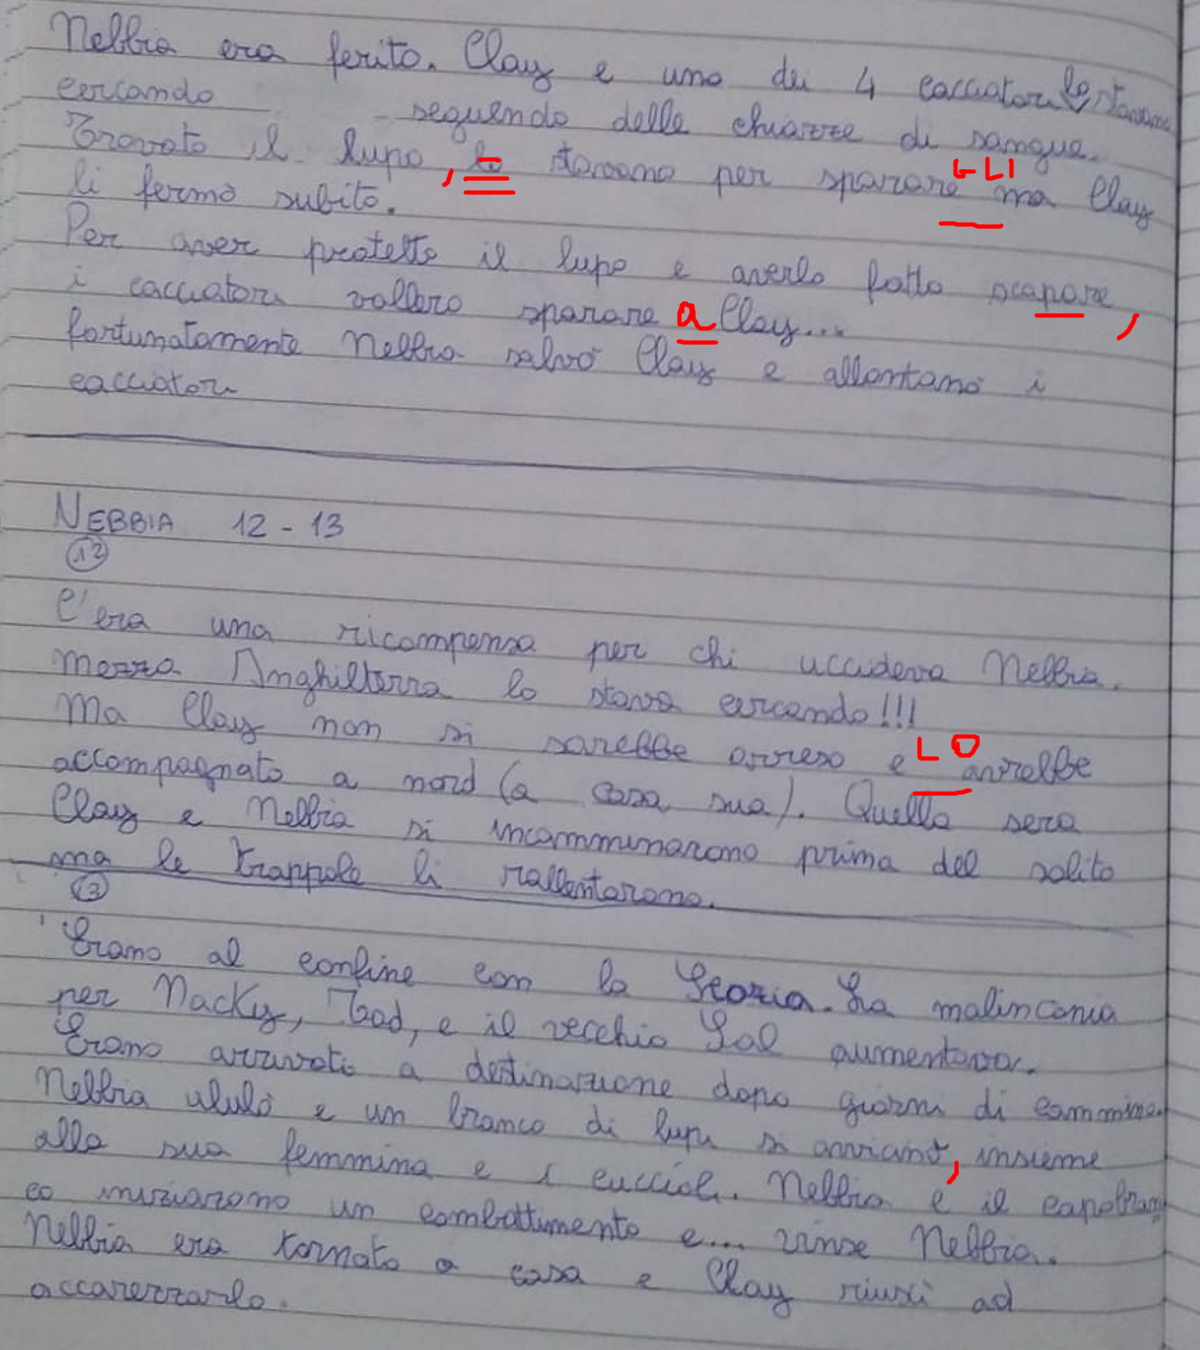 Nebbia era ferito. Clay e uno dei 4 cacciatori lo stavano
cercando seguendo delle chiazze di sangue.
Trovato il lupo, lo stavano per sparare GLI ma Clay
li fermò subito.
Per aver protetto il lupo e averlo fatto scapare,
i cacciatori vollero sparare a Clay...
fortunatamente Nebbia salvò Clay e allontanò i
cacciatori
NEBBIA 12-13
12
C'era una ricompensa per chi uccideva Nebbia.
Mezza Inghilterra lo stava cercando!!!
Ma Clay non si sarebbe arreso e LO avrebbe
accompagnato a nord (a casa sua). Quella sera
Clay e Nebbia si incamminarono prima del solito
ma le trappole li rallentarono.
13
Erano al confine con la Scozia. La malinconia
per Macky, Tad, e il vecchio Sal aumentava.
Erano arrivati a destinazione dopo giorni di cammino.
Nebbia ululò e un branco di lupi si avvicinò, insieme
alla sua femmina e i cuccioli. Nebbia e il capobran
co iniziarono un combattimento e... vinse Nebbia.
Nebbia era tornato a casa e Clay riuscì ad
accarezzarlo.